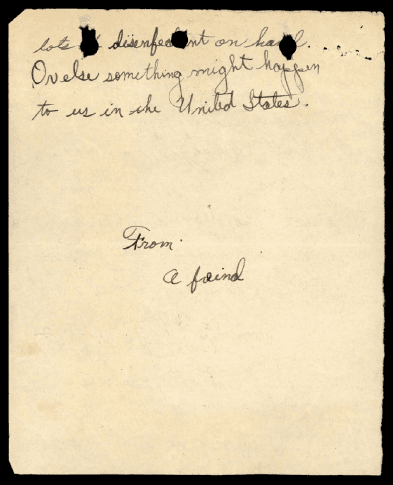 lots disenfectent on hand.
Or else something might happen
to us in the United States.
From
A freind